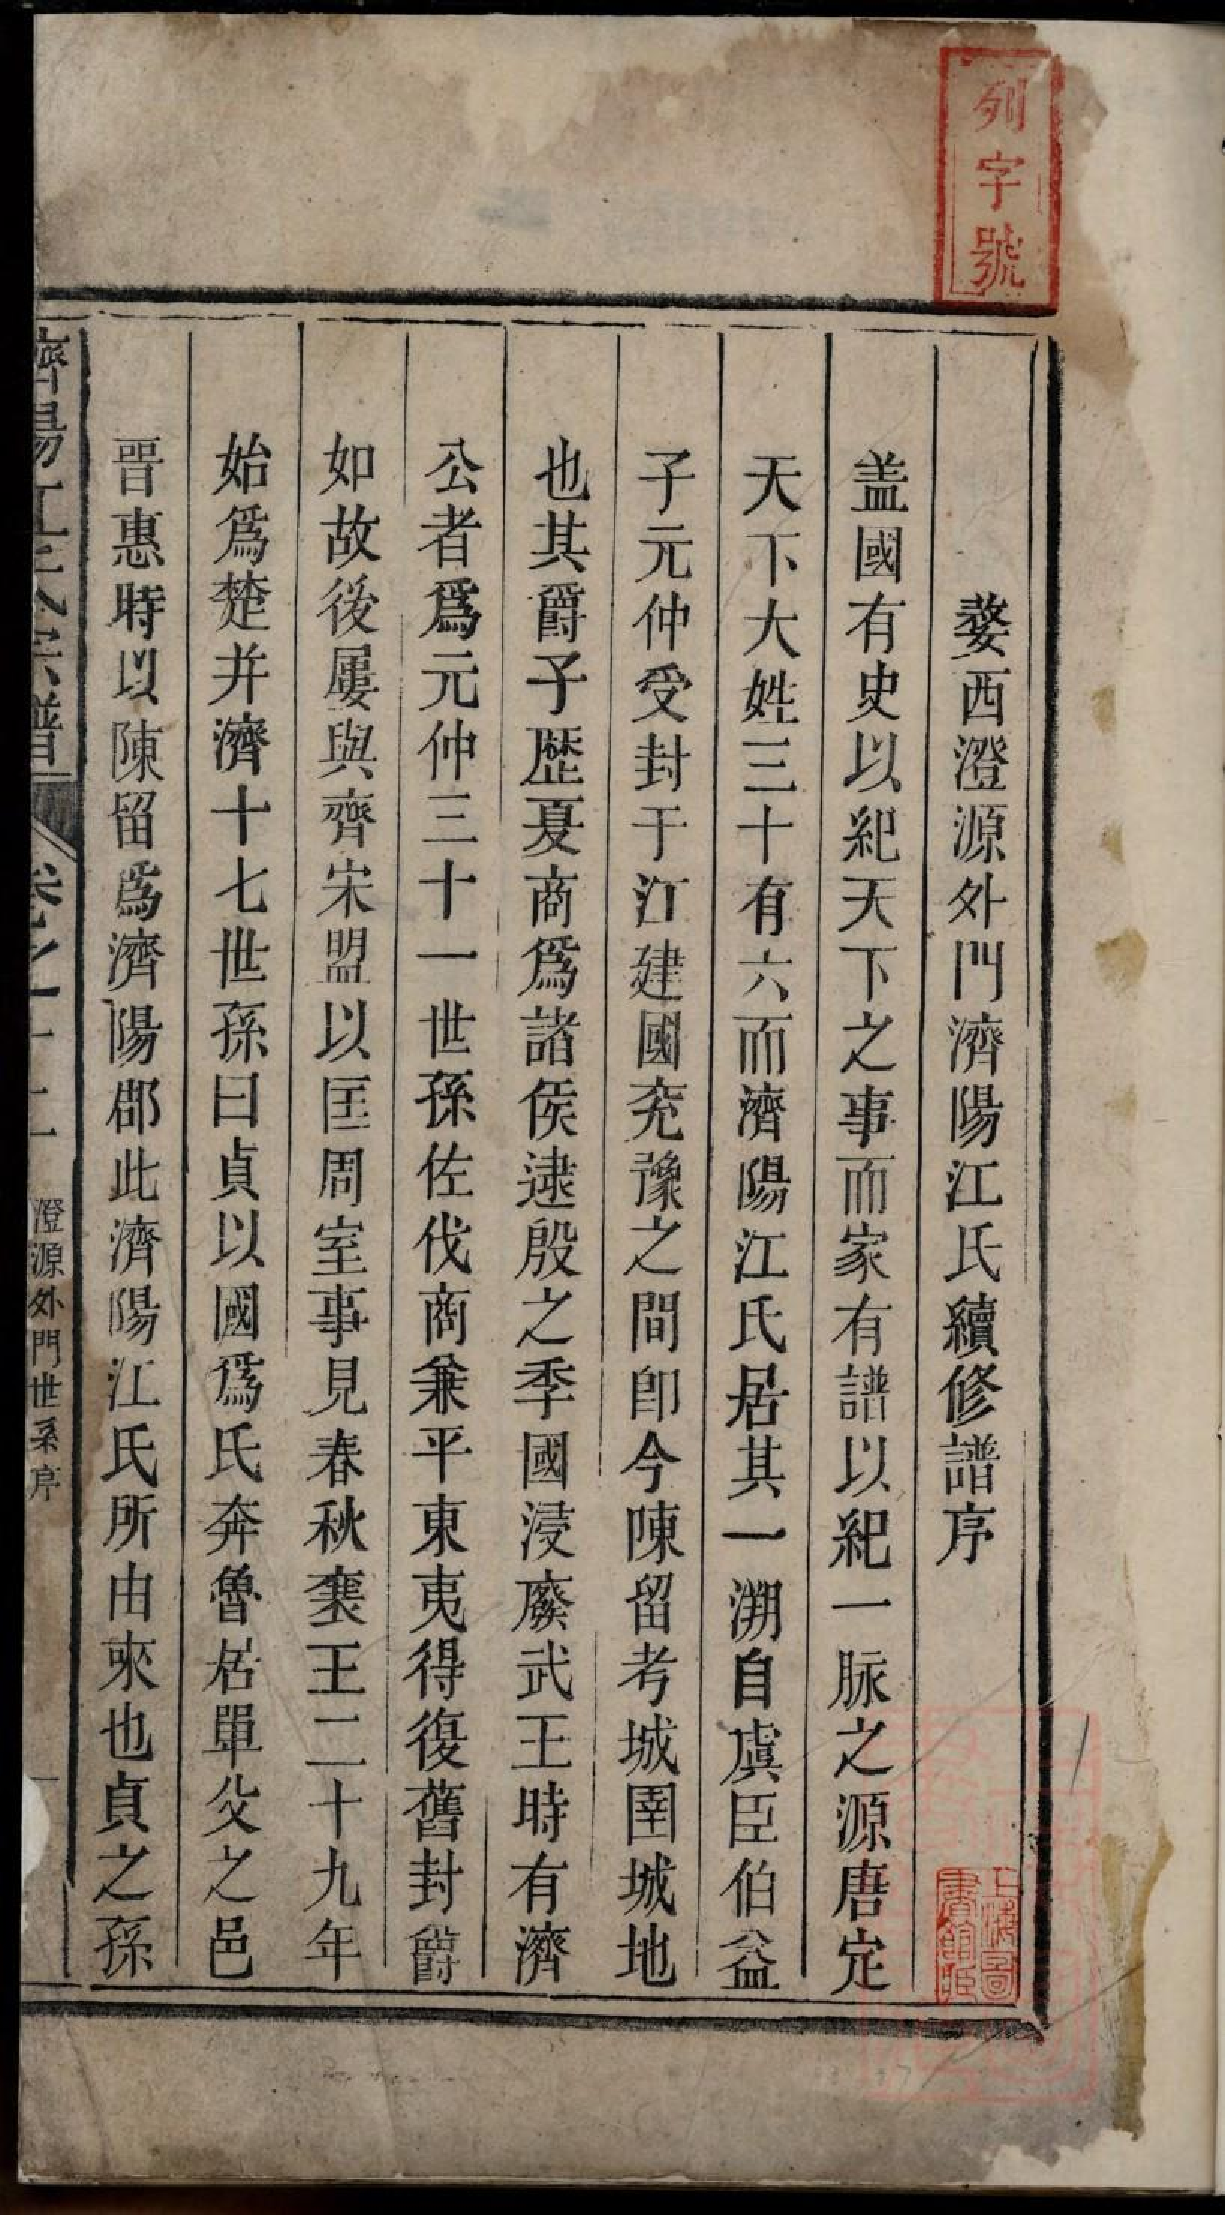 列字號
婺西澄源外門濟陽江氏續修譜序
盖國有史以紀天下之事而家有譜以紀一脉之源唐定
天下大姓三十有六而濟陽江氏居其一溯自虞臣伯益
子元仲受封于江建國兖豫之間卽今陳留考城圉城地
也其爵子歷夏商爲諸侯逮殷之季國浸廢武王時有濟
公者爲元仲三十一世孫佐伐商兼平東夷得復舊封爵
如故後屢與齊宋盟以匡周室事見春秋襄王二十九年
始爲楚并濟十七世孫曰貞以國爲氏奔魯居單父之邑
晋惠時以陳留爲濟陽郡此濟陽江氏所由來也貞之孫
濟陽江氏宗譜
卷之十二
澄源外門世系序
一
上海圖書館藏